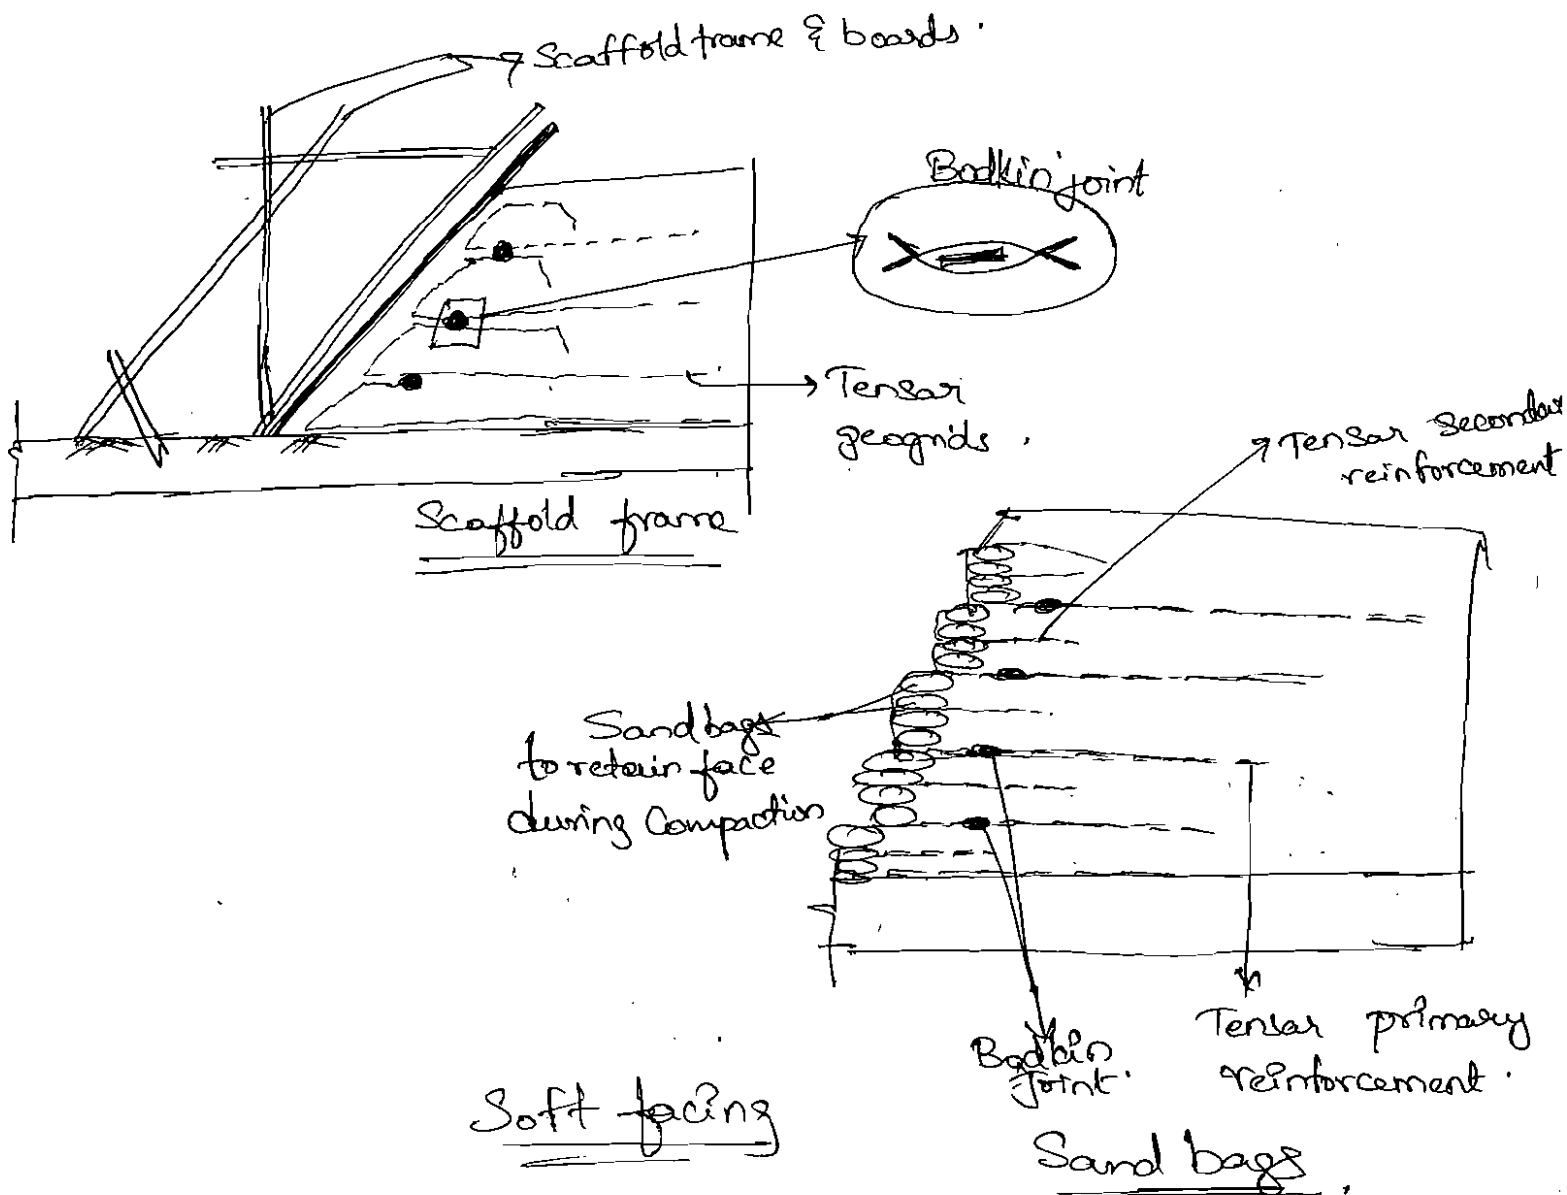 Scaffold frame & boards.
Bodkin joint
Tensar
geogrids.
Scaffold frame
Tensar secondar
reinforcement
Sandbags
to retain face
during Compaction
Bodkin
joint.
Tensar primary
reinforcement.
Soft facing
Sand bags